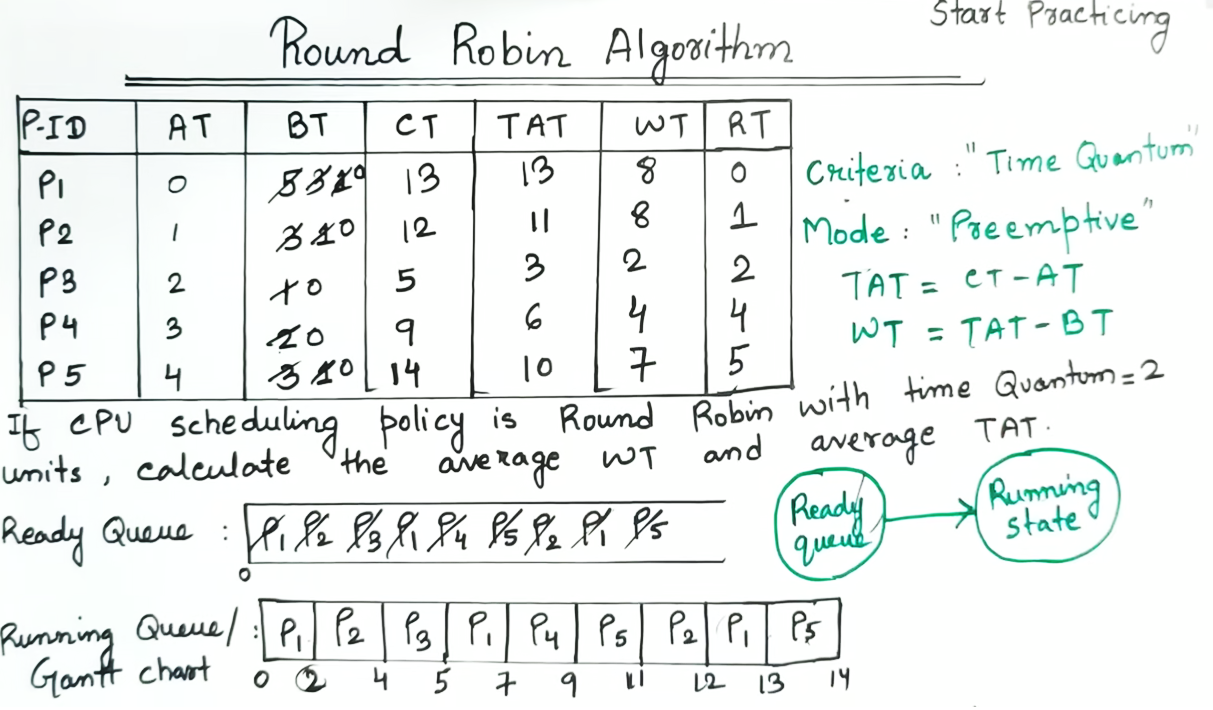 Start Practicing
Round Robin Algorithm
P-ID AT BT CT TAT WT RT
P1 0 5 3 1 0 13 13 8 0
P2 1 3 1 0 12 11 8 1
P3 2 1 0 5 3 2 2
P4 3 2 0 9 6 4 4
P5 4 3 1 0 14 10 7 5
Criteria : "Time Quantum"
Mode : "Preemptive"
TAT = CT - AT
WT = TAT - BT
If CPU scheduling policy is Round Robin with time Quantum = 2
units, calculate the average WT and average TAT.
Ready Queue : P1 P2 P3 P1 P4 P5 P2 P1 P5
0
Ready queue
Running state
Running Queue/ : P1 P2 P3 P1 P4 P5 P2 P1 P5
Gantt chart 0 2 4 5 7 9 11 12 13 14